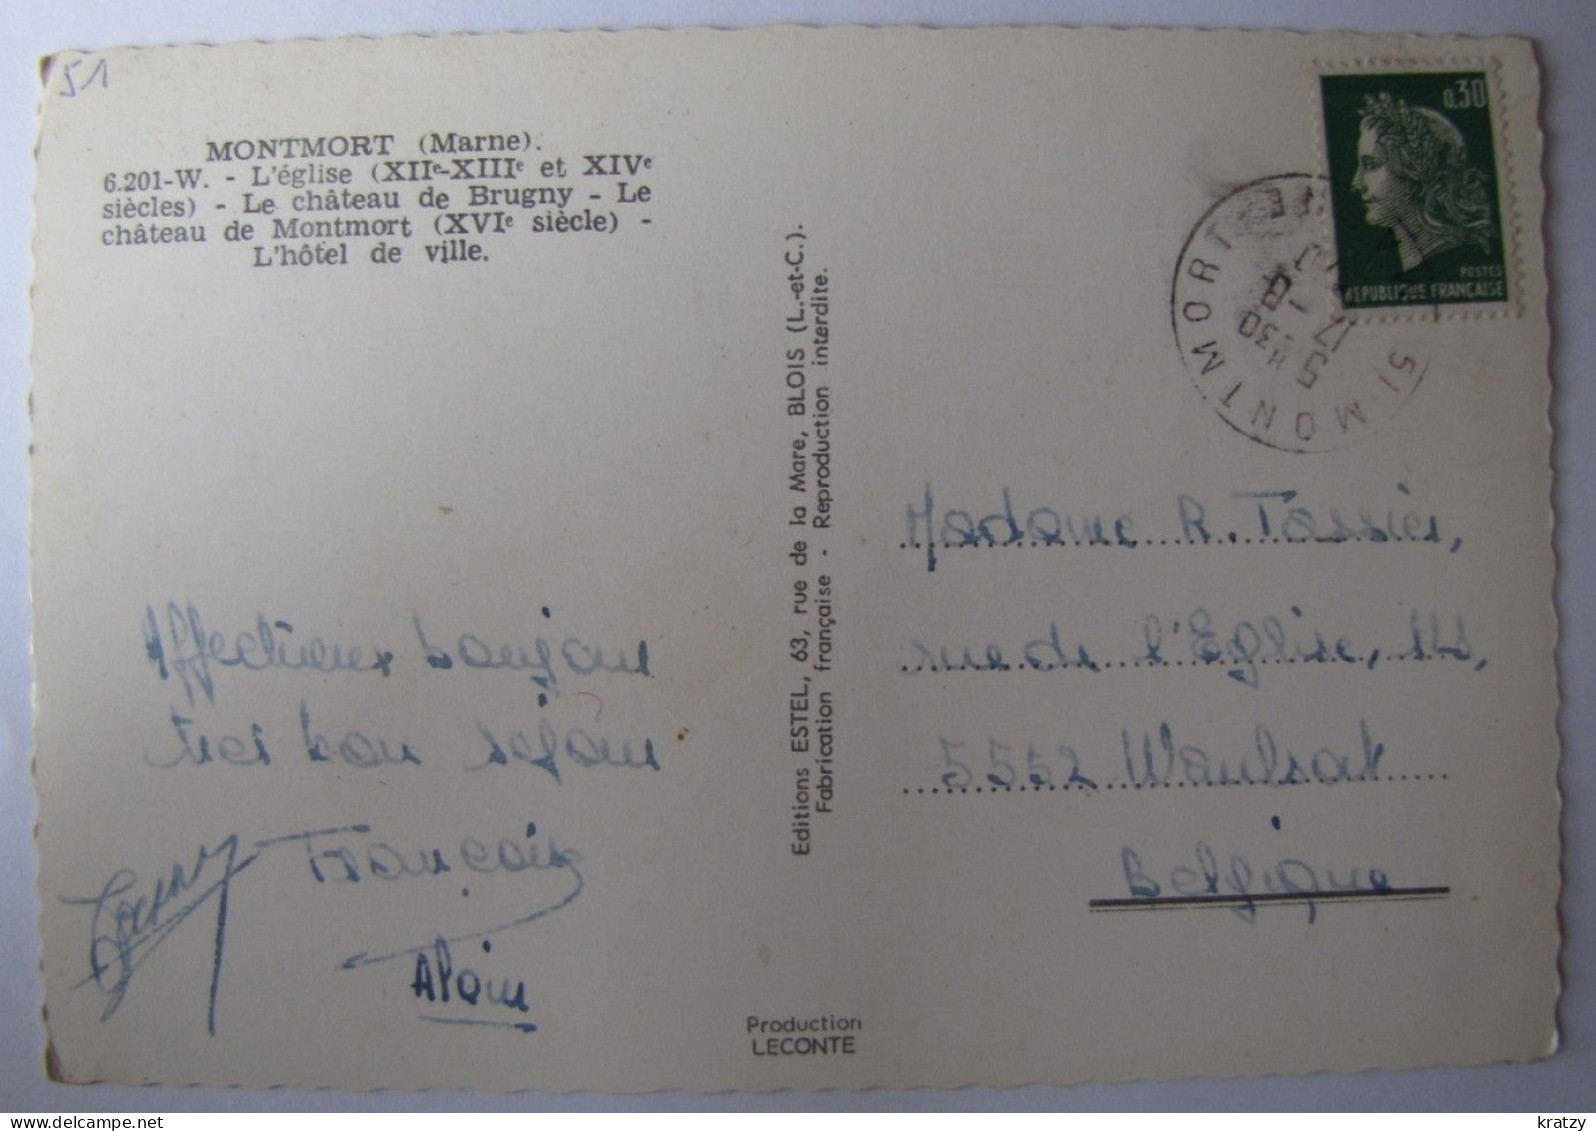 51
MONTMORT (Marne).
6.201-W. - L'église (XIIe-XIIIe et XIVe
siècles) - Le château de Brugny - Le
château de Montmort (XVIe siècle) -
L'hôtel de ville.
Affectueux bonjour
très bon séjour
François
Alain
Editions ESTEL, 63, rue de la Mare, BLOIS (L.-et-C.).
Fabrication française - Reproduction interdite.
Production
LECONTE
0,30
POSTES
REPUBLIQUE FRANÇAISE
51 MONTMORT
17 H 30
Madame R. Tassier,
rue de l'Eglise,
5552 Waulsort
Belgique
kratzy